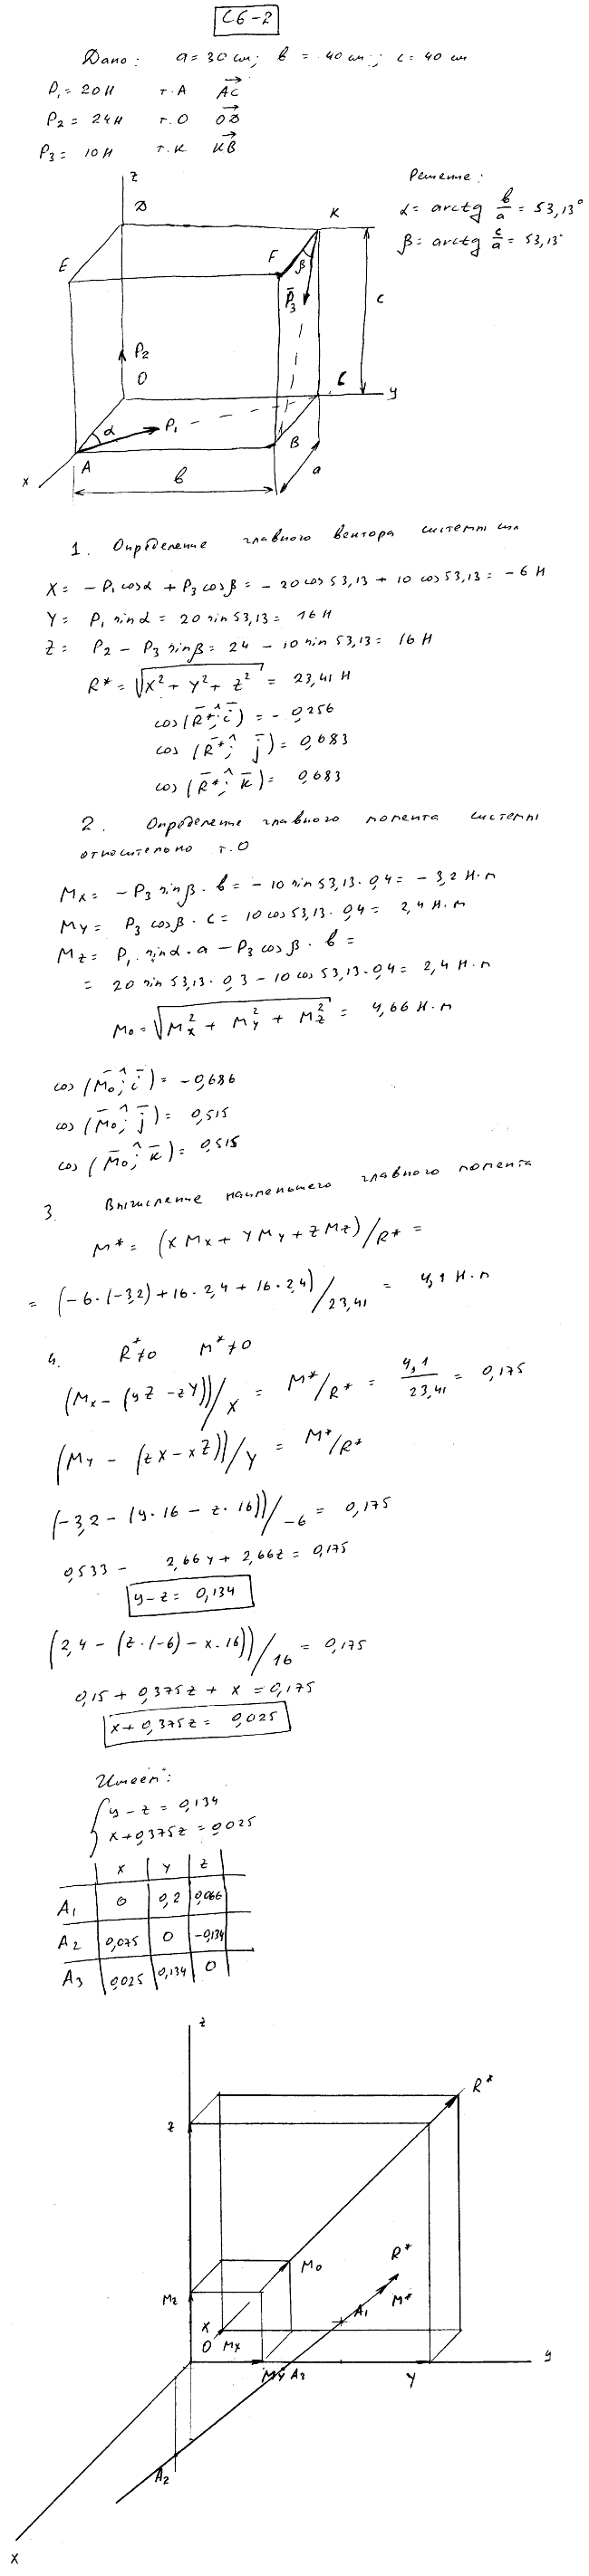 С6-2
Дано: a = 30 см; b = 40 см; c = 40 см
P₁ = 20 Н т. A AC
P₂ = 24 Н т. O OD
P₃ = 10 Н т. K KB
Решение:
α = arctg b/a = 53,13°
β = arctg c/a = 53,13°
z
D
K
E
F
β
P̄₃
c
P₂
O
C
y
α
P₁
B
A
x
b
a
1. Определение главного вектора системы сил
X = - P₁ cosα + P₃ cosβ = - 20 cos 53,13 + 10 cos 53,13 = - 6 Н
Y = P₁ sinα = 20 sin 53,13 = 16 Н
Z = P₂ - P₃ sinβ = 24 - 10 sin 53,13 = 16 Н
R* = √X² + Y² + Z² = 23,41 Н
cos (R̄*;^ ī) = - 0,256
cos (R̄*;^ j̄) = 0,683
cos (R̄*;^ k̄) = 0,683
2. Определение главного момента системы
относительно т. O
Mx = - P₃ sinβ · b = - 10 sin 53,13 · 0,4 = - 3,2 Н·м
My = P₃ cosβ · c = 10 cos 53,13 · 0,4 = 2,4 Н·м
Mz = P₁ sinα · a - P₃ cosβ · b =
= 20 sin 53,13 · 0,3 - 10 cos 53,13 · 0,4 = 2,4 Н·м
M₀ = √Mx² + My² + Mz² = 4,66 Н·м
cos (M̄₀;^ ī) = - 0,686
cos (M̄₀;^ j̄) = 0,515
cos (M̄₀;^ k̄) = 0,515
3. Вычисление наименьшего главного момента
M* = (X Mx + Y My + Z Mz)/R* =
= (-6·(-3,2) + 16·2,4 + 16·2,4)/23,41 = 4,1 Н·м
4. R* ≠ 0 M* ≠ 0
(Mx - (yZ - zY))/X = M*/R* = 4,1/23,41 = 0,175
(My - (zX - xZ))/Y = M*/R*
(-3,2 - (y·16 - z·16))/-6 = 0,175
0,533 - 2,66y + 2,66z = 0,175
y - z = 0,134
(2,4 - (z·(-6) - x·16))/16 = 0,175
0,15 + 0,375z + x = 0,175
x + 0,375z = 0,025
Имеем:
y - z = 0,134
x + 0,375z = 0,025
X Y Z
A₁ 0 0,2 0,066
A₂ 0,075 0 -0,134
A₃ 0,025 0,134 0
z
R*
Z
M₀
R*
Mz
M*
X
A₁
O Mx
y
My A₃
Y
A₂
x